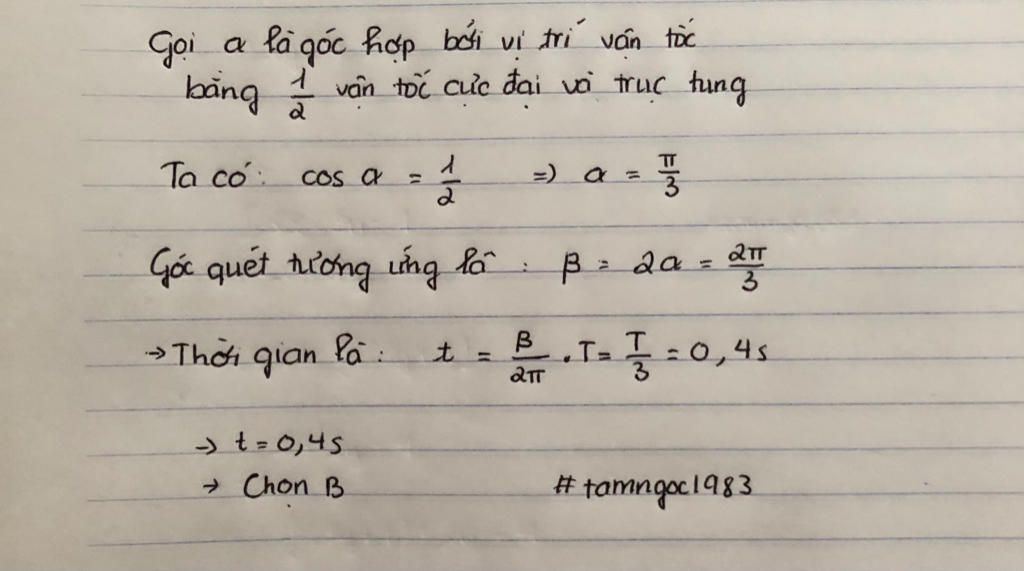 Gọi α là góc hợp bởi vị trí vận tốc
bằng 1/2 vận tốc cực đại và trục tung
Ta có: cos α = 1/2 => α = π/3
Góc quét tương ứng là: β = 2α = 2π/3
→ Thời gian là: t = β/2π . T = T/3 = 0,4s
→ t = 0,4s
→ Chọn B #tamngoc1983